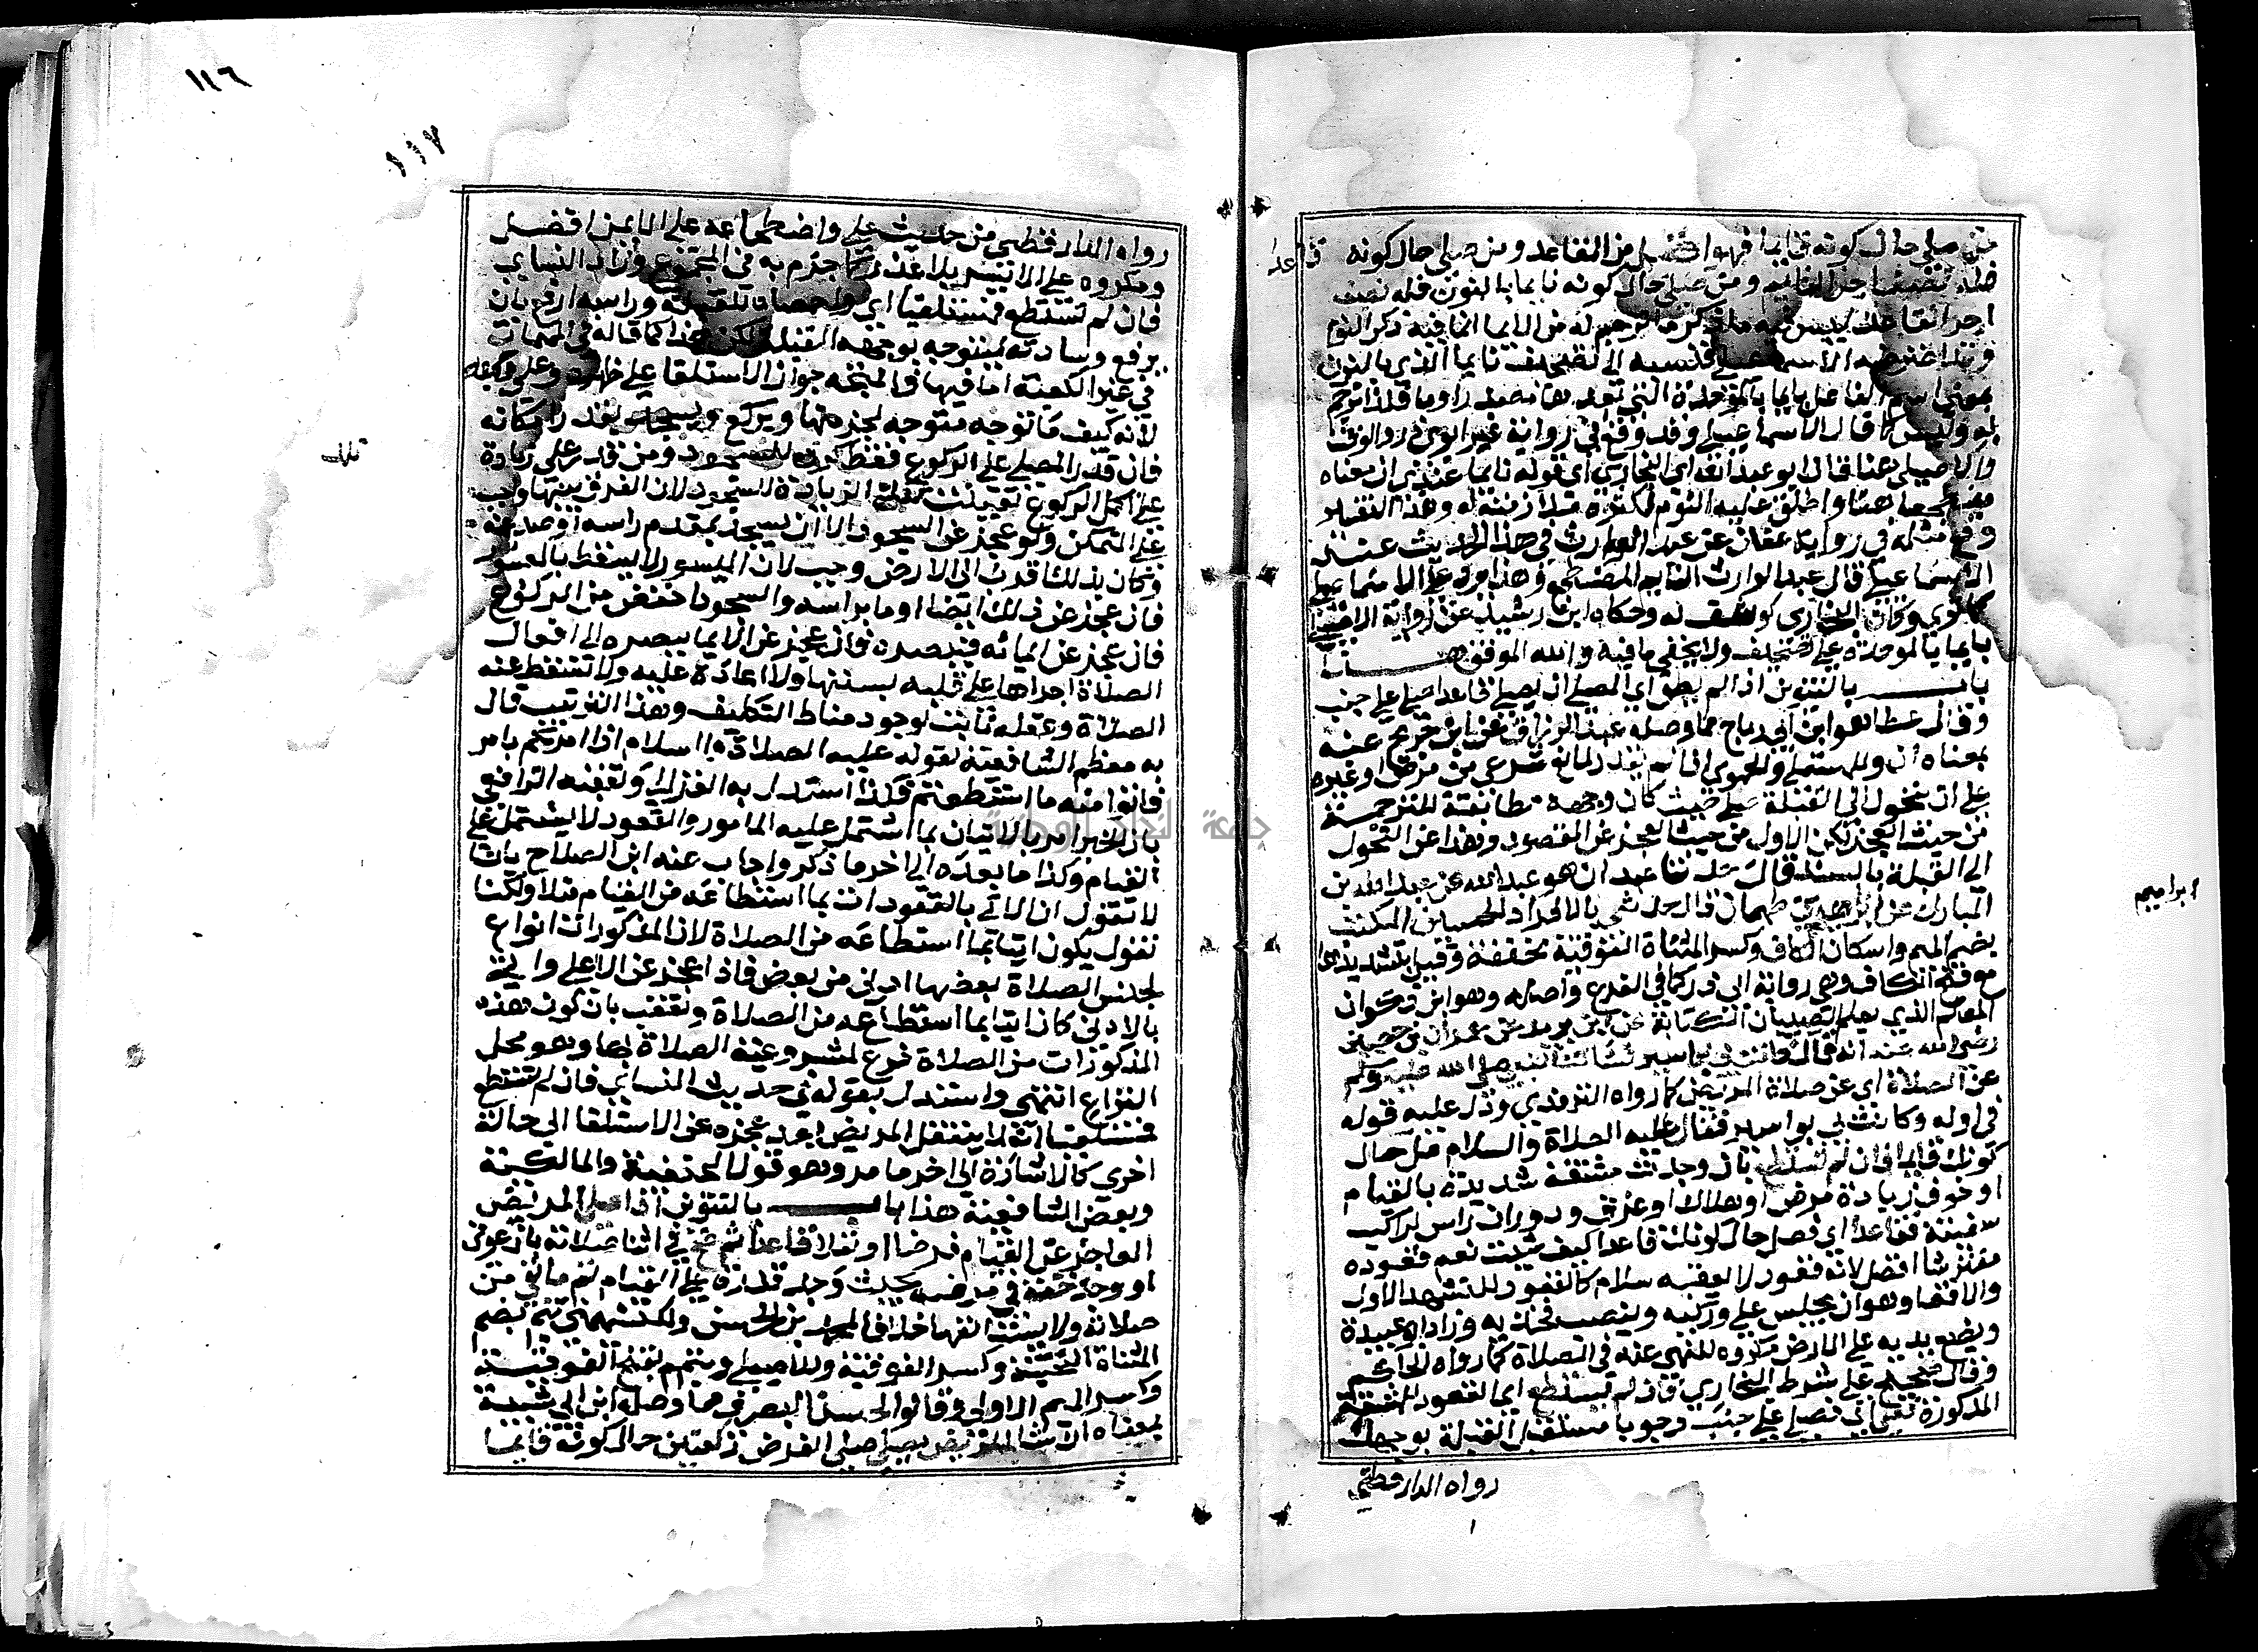 من صلي حال كونه قايما فهو افضل من القاعد ومن صلي حال كونه قاعدا
فله نصف اجر القايم ومن صلي حال كونه نايما بالنون فله نصف
اجر القاعد ليس فيه ما ذكر من الايما انما فيه ذكر النوم
الاسماعيلي فنسبه الي تصحيف نايما الذي بالنون
بمعني اسم الفاعل بايما بالموحدة التي بعدها مصدر اوما فلذا ترجم
به وليس كما قال الاسماعيلي وقد وقع في رواية غير ابوي ذر والوقت
والاصيلي هنا قال ابو عبد الله اي البخاري اي قوله نايما عندي ان معناه
مضطجعا هنا واطلق عليه النوم لكثرة ملازمته له وهذا التفسير
وقع مثله في رواية عفان عن عبد الوارث في هذا الحديث عند
الاسماعيلي قال عبد الوارث النايم المضطجع وهذا يرد علي الاسماعيلي
وكان البخاري كوشف له وحكاه ابن رشيد عن رواية الاصيلي
بايما بالموحدة علي التصحيف ولا يخفي ما فيه والله الموفق هذا
باب بالتنوين اذا لم يطق اي المصلي ان يصلي قاعدا صلي علي جنب
وقال عطا هو ابن ابي رباح مما وصله عبد الرزاق عن ابن جريج عنه
بمعناه ان وللمستملي والحموي اذا لم يقدر لمانع شرعي من مرض او غيره
علي ان يتحول الي القبلة صلي حيث كان وجهه مطابقته للترجمة
من حيث العجز لكن الاول من حيث العجز عن القعود وهذا عن التحول
الي القبلة بالسند قال حدثنا عبدان هو عبد الله عن عبد الله بن
المبارك عن ابراهيم بن طهمان قال حدثني بالافراد الحسين المكتب
بضم الميم واسكان الكاف وكسر المثناة الفوقية مخففة وقيل بتشديدها
مع فتح الكاف وهي رواية ابي ذر كما في الفرع واصله وهو ابن ذكوان
المعلم الذي يعلم الصبيان الكتابة عن ابن بريدة عن عمران بن حصين
رضي الله عنه انه قال كانت بي بواسير فسألت النبي صلي الله عليه وسلم
عن الصلاة اي عن صلاة المريض كما رواه الترمذي ودل عليه قوله
في اوله وكانت بي بواسير فقال عليه الصلاة والسلام صل حال
كونك قايما فان لم تستطع بان وجدت مشقة شديدة بالقيام
او خوف زيادة مرض او هلاك او غرق ودوران راس لراكب
سفينة فقاعدا اي فصل حال كونك قاعدا كيف شئت نعم قعوده
مفترشا افضل لانه قعود لا يعقبه سلام كالقعود للتشهد الاول
والاقعا وهو ان يجلس علي وركيه وينصب فخذيه وزاد ابو عبيدة
ويضع يديه علي الارض مكروه للنهي عنه في الصلاة كما رواه الحاكم
وقال صحيح علي شرط البخاري فان لم تستطع اي القعود للمشقة
المذكورة فعلي اي فصل علي جنب وجوبا مستقبل القبلة بوجهك
رواه الدارقطني
ابراهيم
١١٦
١١٧
رواه الدارقطني من حديث علي واضطجاعه علي الايمن افضل
ومكروه علي الايسر بلا عذر كما جزم به في المجموع وزاد النسايي
فان لم تستطع فمستلقيا اي واخمصاه للقبلة وراسه ارفع بان
يرفع وسادته ليتوجه بوجهه القبلة لكن هذا كما قاله في المهمات
في غير الكعبة اما فيها فالمتجه جواز الاستلقا علي ظهره وعلي وجهه
لانه كيف ما توجه متوجه لجزء منها ويركع ويسجد بقدر امكانه
فان قدر المصلي علي الركوع فقط كرره للسجود ومن قدر علي زيادة
علي اكمل الركوع تعينت تلك الزيادة للسجود لان الفرق بينهما واجب
علي المتمكن ولو عجز عن السجود الا ان يسجد بمقدم راسه او صدغه
وكان بذلك اقرب الي الارض وجب لان الميسور لا يسقط بالمعسور
فان عجز عن ذلك ايضا اوما براسه والسجود اخفض من الركوع
فان عجز عن ايمائه فببصره فان عجز عن الايما ببصره الي افعال
الصلاة اجراها علي قلبه بسننها ولا اعادة عليه ولا تسقط عنه
الصلاة وعقله ثابت لوجود مناط التكليف وهذا الترتيب قال
به معظم الشافعية لقوله عليه الصلاة والسلام اذا امرتكم بامر
فاتوا منه ما استطعتم فلذا استدل به الغزالي وتعقبه الرافعي
بان الخبر امر بالاتيان بما اشتمل عليه المامور والقعود لا يشتمل علي
القيام وكذا ما بعده الي اخر ما ذكر واجاب عنه ابن الصلاح بانا
لا نقول ان الاتي بالقعود ات بما استطاعه من القيام مثلا ولكنا
نقول يكون اتيا بما استطاعه من الصلاة لان المذكورات انواع
لجنس الصلاة بعضها ادني من بعض فاذا عجز عن الاعلي واتي
بالادني كان اتيا بما استطاعه من الصلاة وتعقب بان كون هذه
المذكورات من الصلاة فرع لمشروعية الصلاة بها وهو محل
النزاع انتهي واستدل بقوله في حديث النسايي فان لم تستطع
فمستلقيا انه لا ينتقل المريض بعد عجزه عن الاستلقا الي حالة
اخري كالاشارة الي اخر ما مر وهو قول الحنفية والمالكية
وبعض الشافعية هذا باب بالتنوين اذا صلي المريض
العاجز عن القيام فرضا او نفلا قاعدا ثم صح في اثنا صلاته بان عوفي
او وجد خفة في مرضه بحيث وجد قدرة علي القيام تمم ما بقي من
صلاته ولا يستانفها خلافا لمحمد بن الحسن وللكشميهني يتم بضم
المثناة التحتية وكسر الفوقية وللاصيلي ويتمم بفتح الفوقية
وكسر الميم الاولي وقال الحسن البصري مما وصله ابن ابي شيبة
بمعناه ان شا المريض صلي الفرض ركعتين حال كونه قايما
تلك